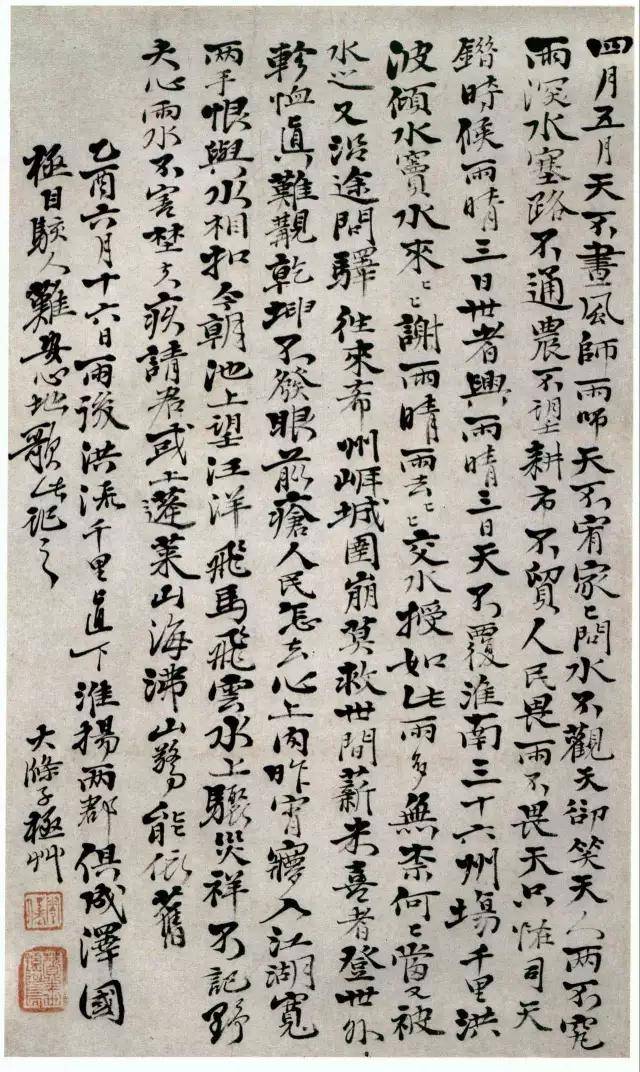 四月五月天不晝風師雨師天不宥家〻問水不觀天卻笑天人兩不究
雨深水塞路不通農不望耕市不貿人民畏雨不畏天只怪司天
錯時候雨晴三日世者興雨晴三日天不覆淮南三十六州場千里洪
波傾水竇水來〻謝雨晴雨去〻交水授如此雨多無柰何〻當又被
水又沿途問驛往來希州城圍崩莫救世間薪米喜者登世外
軫恤真難覯乾坤不發眼前瘡人民怎去心上肉昨宵夢入江湖寬
兩手恨與水相扣今朝池上望汪洋飛馬飛雲水上驟災祥不記野
夫心雨水不害埜夫疾請君或上蓬萊山海沸山勢能依舊
乙酉六月十六日雨後洪流千里直下淮揚兩郡俱成澤國
極目駭人難安心地歌此記之
大滌子極艸